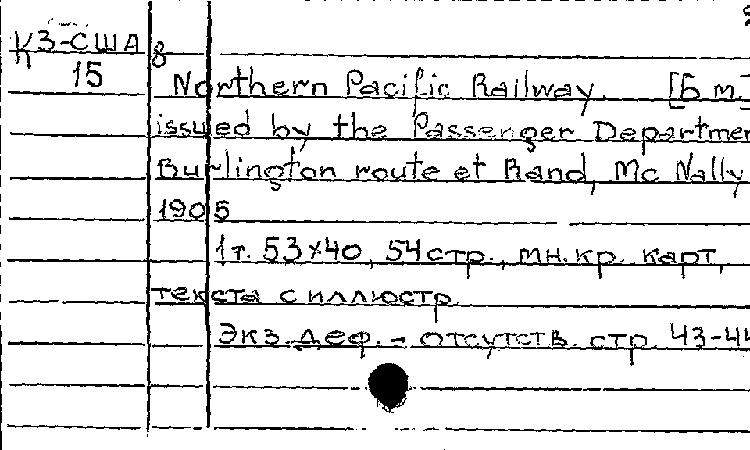 К3-США 8
15
Northern Pacific Railway. [Б.м.]
issued by the Passenger Departmen
Burlington route et Rand, Mc Nally
1905
1 т. 53x40, 54 стр., мн.кр. карт,
текста с иллюстр.
Экз. деф. - отсутств. стр. 43-44